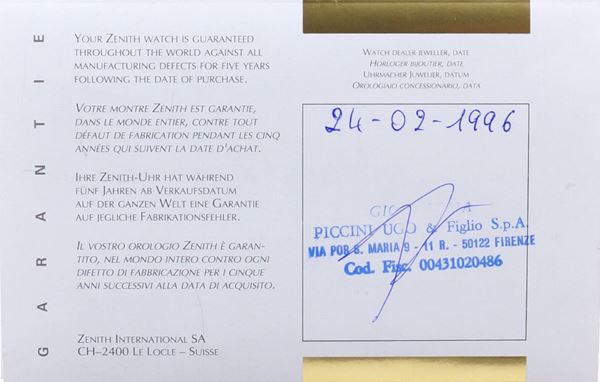 GARANTIE
YOUR ZENITH WATCH IS GUARANTEED
THROUGHOUT THE WORLD AGAINST ALL
MANUFACTURING DEFECTS FOR FIVE YEARS
FOLLOWING THE DATE OF PURCHASE.
VOTRE MONTRE ZENITH EST GARANTIE,
DANS LE MONDE ENTIER, CONTRE TOUT
DÉFAUT DE FABRICATION PENDANT LES CINQ
ANNÉES QUI SUIVENT LA DATE D'ACHAT.
IHRE ZENITH-UHR HAT WÄHREND
FÜNF JAHREN AB VERKAUFSDATUM
AUF DER GANZEN WELT EINE GARANTIE
AUF JEGLICHE FABRIKATIONSFEHLER.
IL VOSTRO OROLOGIO ZENITH È GARAN-
TITO, NEL MONDO INTERO CONTRO OGNI
DIFETTO DI FABBRICAZIONE PER I CINQUE
ANNI SUCCESSIVI ALLA DATA DI ACQUISTO.
ZENITH INTERNATIONAL SA
CH–2400 LE LOCLE – SUISSE
WATCH DEALER JEWELLER, DATE
HORLOGER BIJOUTIER, DATE
UHRMACHER JUWELIER, DATUM
OROLOGIAIO CONCESSIONARIO, DATA
24-02-1996
PICCINI UGO & Figlio S.p.A.
VIA POR S. MARIA 9 - 11 R. - 50122 FIRENZE
Cod. Fisc. 00431020486